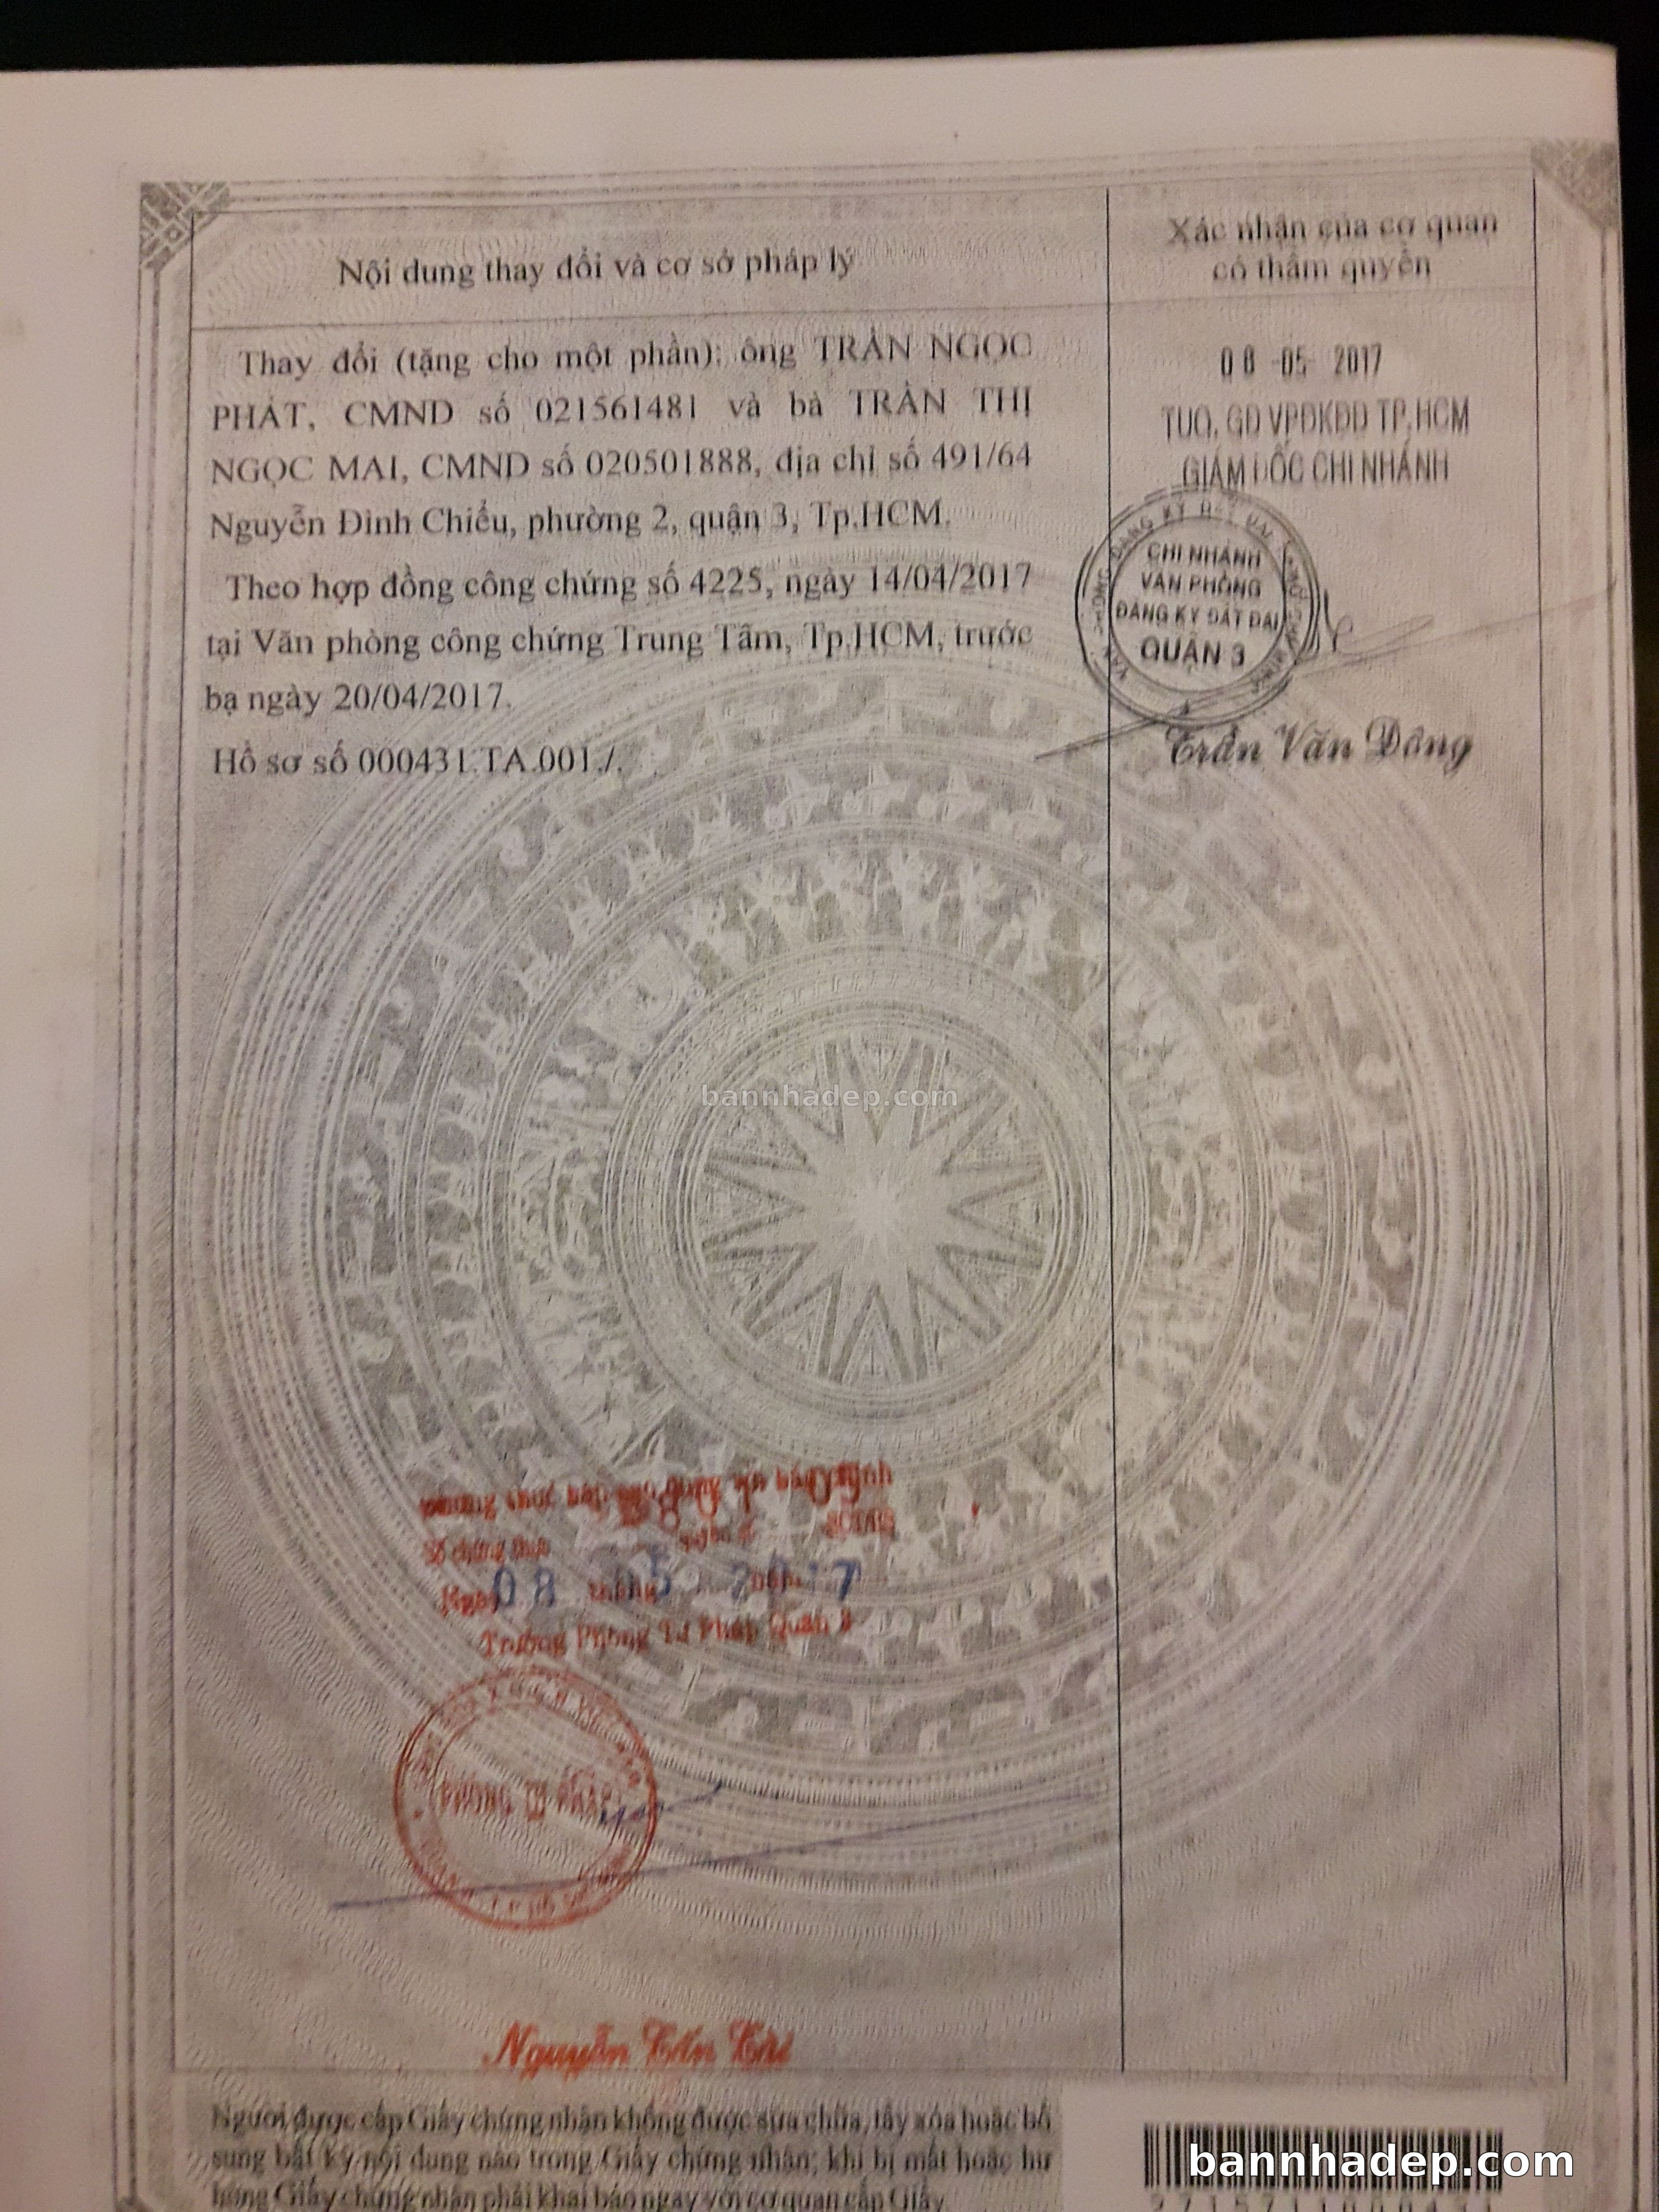 Nội dung thay đổi và cơ sở pháp lý
Xác nhận của cơ quan
có thẩm quyền
Thay đổi (tặng cho một phần): ông TRẦN NGỌC
PHÁT, CMND số 021561481 và bà TRẦN THỊ
NGỌC MAI, CMND số 020501888, địa chỉ số 491/64
Nguyễn Đình Chiểu, phường 2, quận 3, Tp.HCM.
Theo hợp đồng công chứng số 4225, ngày 14/04/2017
tại Văn phòng công chứng Trung Tâm, Tp.HCM, trước
bạ ngày 20/04/2017.
Hồ sơ số 000431.TA.001./.
08 -05- 2017
TUQ. GĐ VPĐKĐĐ TP.HCM
GIÁM ĐỐC CHI NHÁNH
CHI NHÁNH
VĂN PHÒNG
ĐĂNG KÝ ĐẤT ĐAI
QUẬN 3
Trần Văn Dông
bannhadep.com
Số chứng thực
Ngày 08 tháng 05
Trưởng Phòng Tư Pháp Quận 3
PHÒNG TƯ PHÁP
Nguyễn
Người được cấp Giấy chứng nhận không được sửa chữa, tẩy xóa hoặc bổ
sung bất kỳ nội dung nào trong Giấy chứng nhận; khi bị mất hoặc hư
hỏng Giấy chứng nhận phải khai báo ngay với cơ quan cấp Giấy.
bannhadep.com